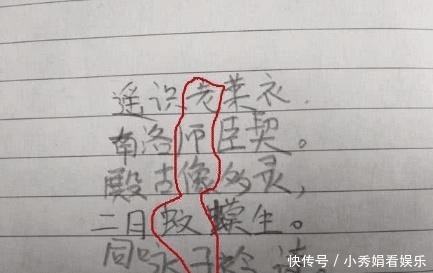 遥识老莱衣.
南洛师臣契。
殿古像多灵,
二月蚊蟆生。
同咏子
快传号 / 小秀娟看娱乐